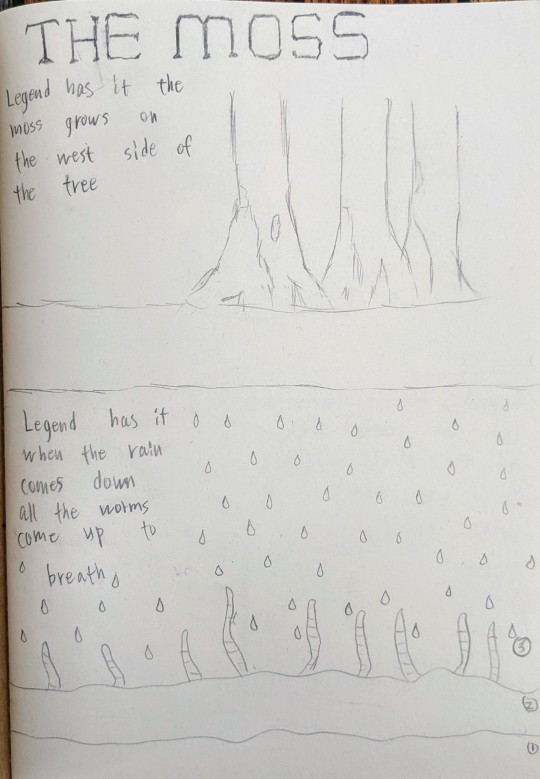 THE MOSS
Legend has it the
moss grows on
the west side of
the tree
Legend has it
when the rain
comes down
all the worms
come up to
breath
3
2
1